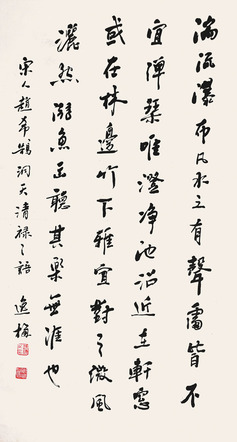 湍流瀑布凡水之有聲處皆不
宜彈琴唯澄淨池沼近在軒窗
或在林邊竹下雅宜對之微風
灑然游魚出聽其樂無涯也
宋人趙希鵠洞天清祿之語 逸梅